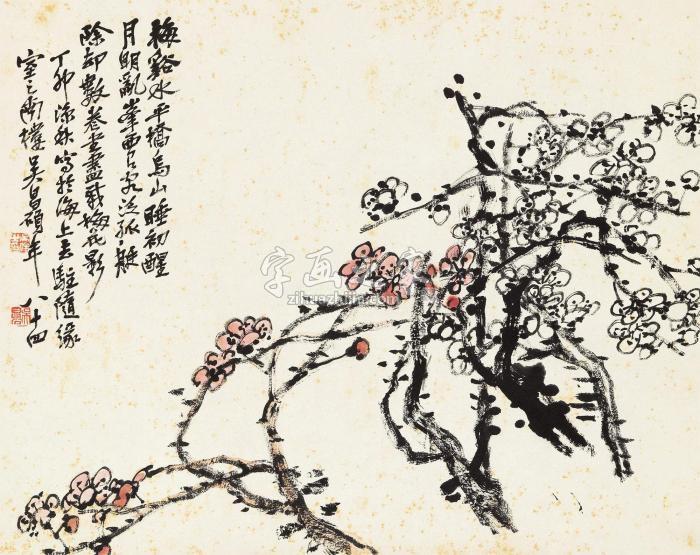 梅谿水平橋烏山睡初醒
月明亂峯西有客泛孤艇
除却數卷書盡載梅花影
丁卯深秋寫於海上去駐隨緣
室之南樓吳昌碩年八十四
字画之家
zihuazhijia.com